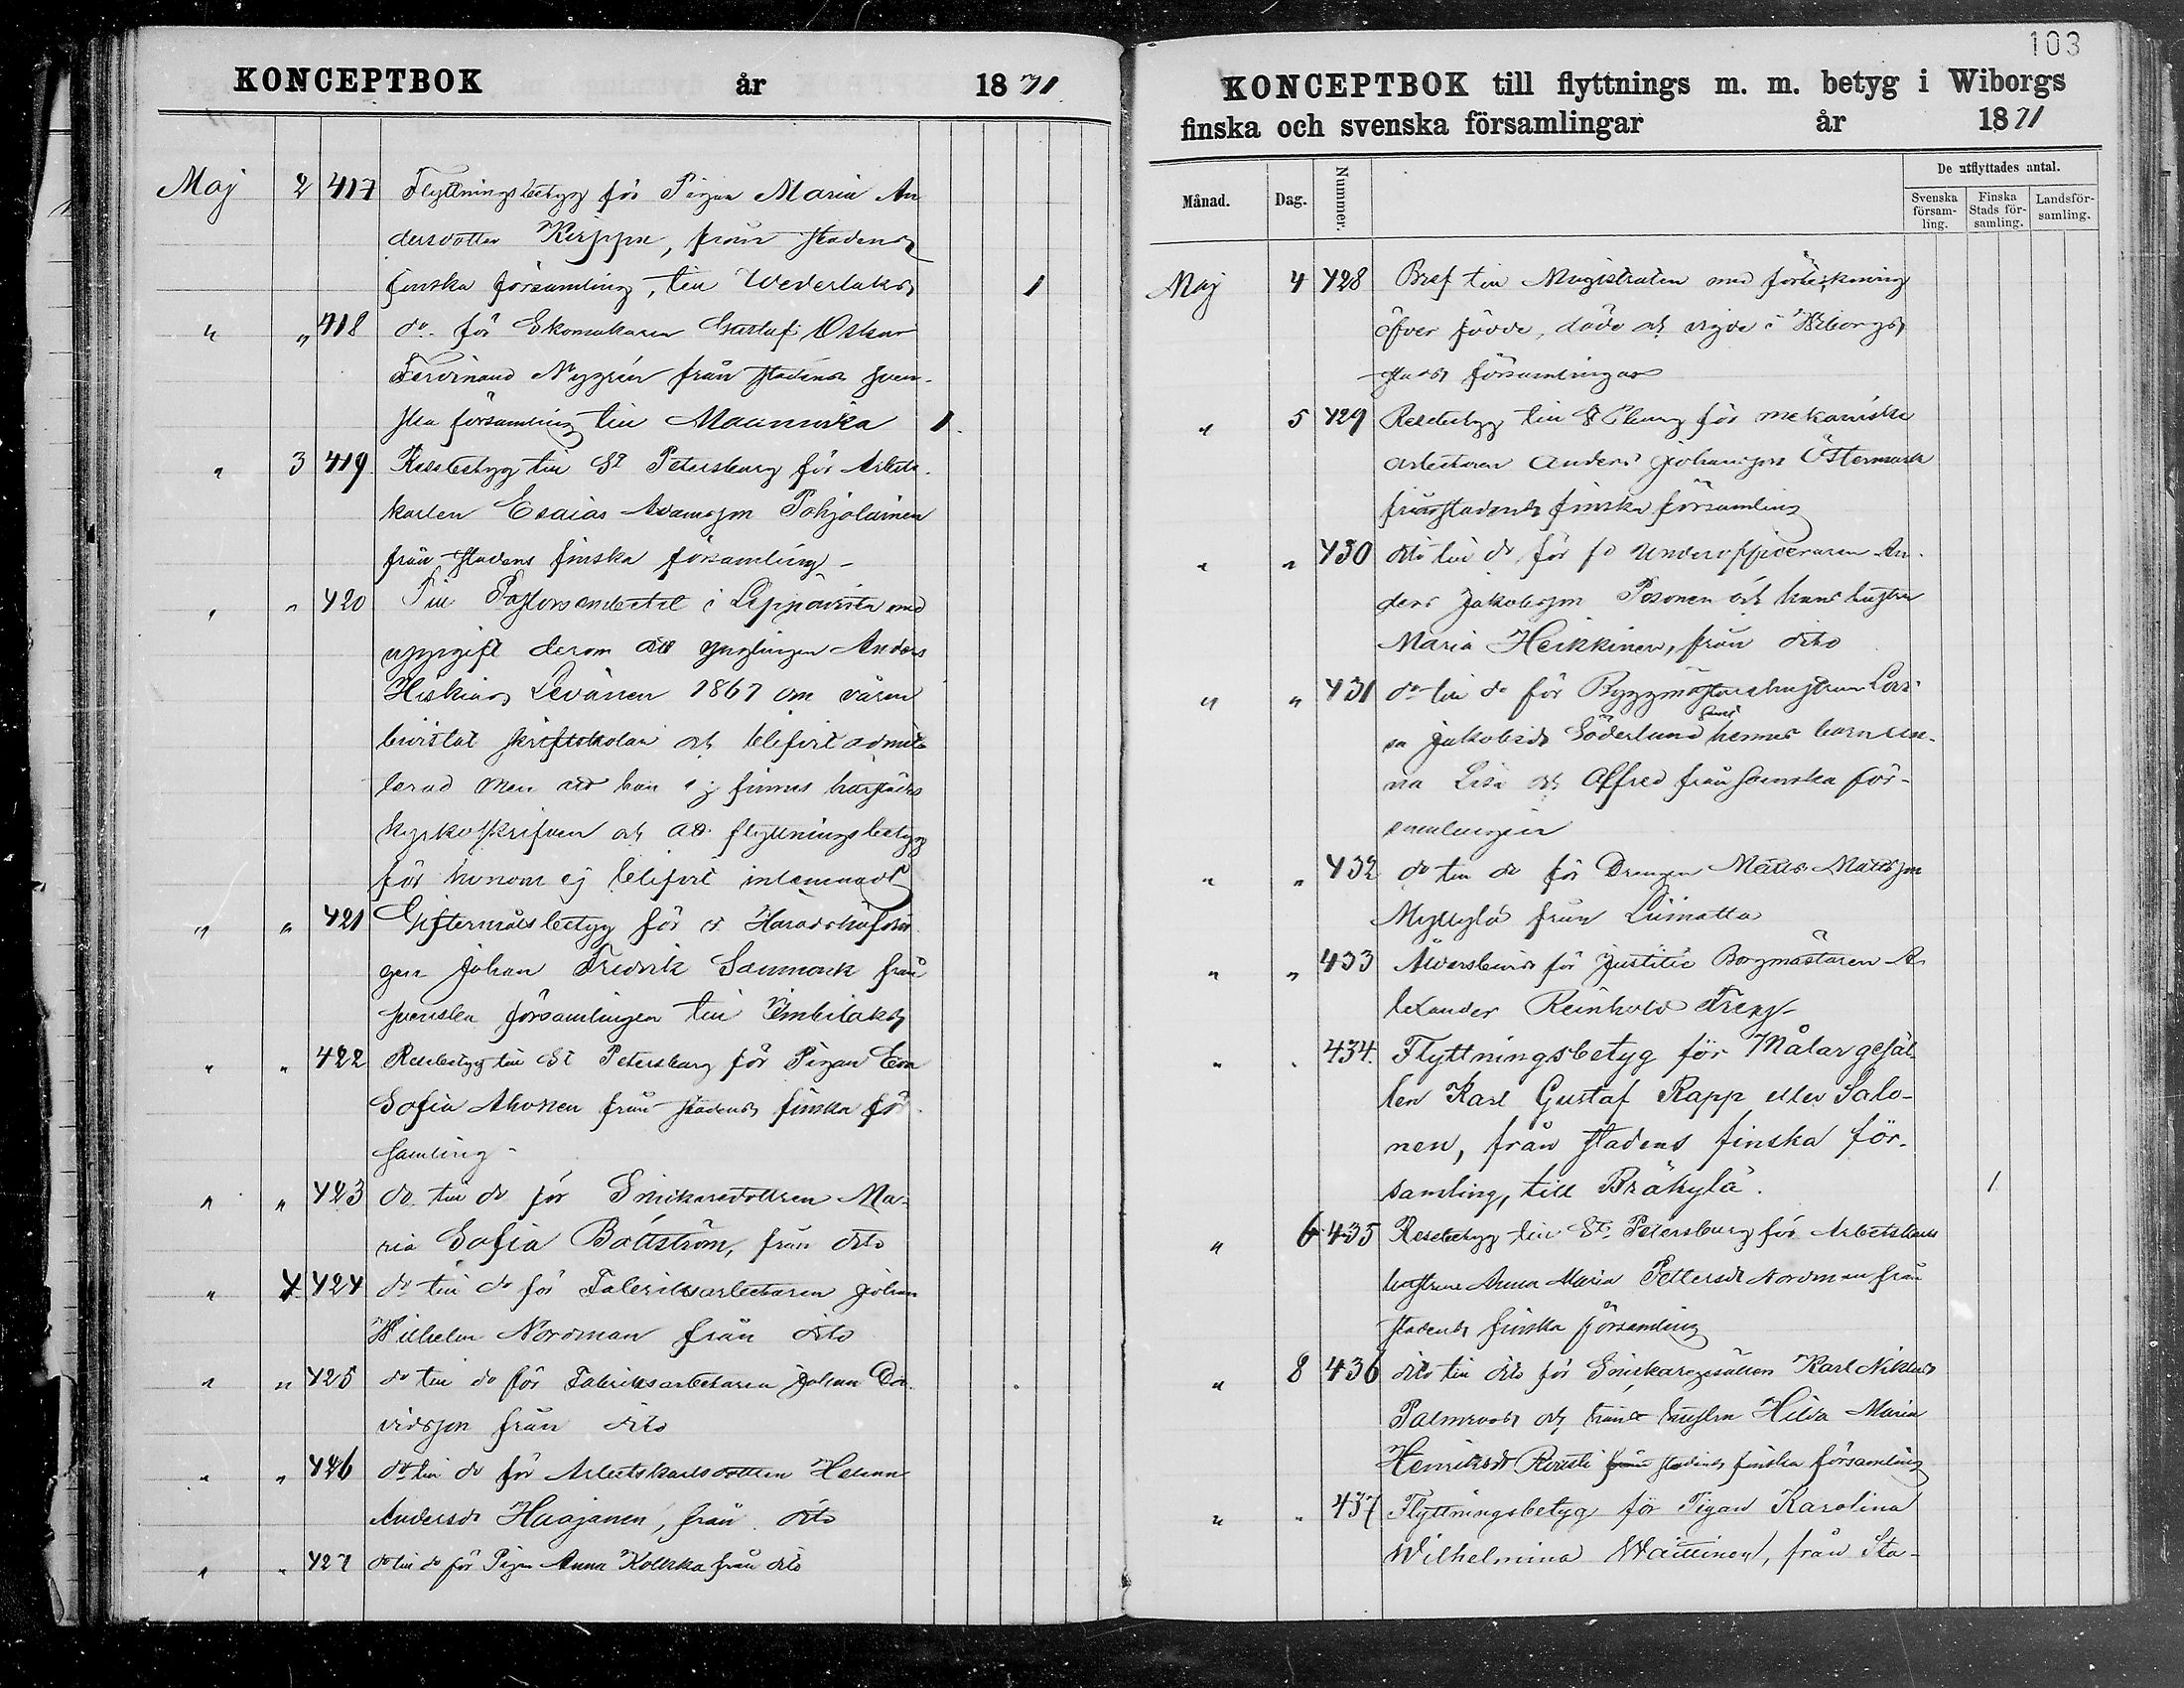 KONCEPTBOK år 1871
Maj 2 417 Flyttningsbetyg för Pigan Maria An
dersdotter Kerppe, från stadens
finska församling, till Wederlaks 1
" " 418 do. för Ekomakaren Gustaf Oskar
Ferdinand Nygrén från stadens sven-
ska församling till Maaninka 1.
" 3 419. Resebetyg till St Petersburg för Arbets-
karlen Esaias Adamsson Pohjolainen
från stadens finska församling
" " 420 Till Pastorsembetet i Leppävirta med
uppgift derom att ynglingen Anders
Hiskias Levänen 1867 om våren
bivistat skriftskolan och blifvit admit-
terad men att han ej finnes härstädes
kyrkoskrifven och att flyttningsbetyg
för honom ej blifvit inlemnadt
" " 421 Giftermålsbetyg för v. Häradshöfdin
gen Johan Fredrik Sanmark från
svenska församlingen till Imbilaks
" " 422 Resebetyg till St Petersburg för Pigan Eva
Sofia Ahonen från stadens finska för
samling
" " 423 do till do för Snickaredottren Ma-
ria Sofia Bottström, från dito
" 4 424 do till do för Fabriksarbetaren Johan
Wilhelm Nordman från dito
" " 425 do till do för Fabriksarbetaren Johan Da-
vidsson från dito
" " 426 do till do för Arbetskarlsdottren Helena
Andersdr Haajanen, från dito
" " 427 do till do för Pigan Anna Kollkka från dito
103
KONCEPTBOK till flyttnings m. m. betyg i Wiborgs
finska och svenska församlingar år 1871
Månad. Dag. Nummer. De utflyttades antal.
Svenska försam-ling. Finska Stads för-samling. Landsför-samling.
Maj 4 428 Bref till Magistraten med förteckning
öfver födde, döde och vigde i Wiborgs
stads församlingar
" 5 429 Resebetyg till St Pburg för mekaniske
arbetaren Anders Johansson Östermark
från stadens finska församling
" " 430 dito till do för fd Underofficeraren An-
ders Jakobsson Posonen och hans hustru
Maria Heikkinen, från dito
" " 431 do till do för Byggmästarehustrun Lovi-
sa Jakobsdr Söderlund samt hennes barn An-
na Lisa och Alfred från svenska för-
samlingen
" " 432 do till do för Drengen Matts Mattsson
Myllylä från Liimatta
" " 433 Åldersbevis för Justitie Borgmästaren A-
lexander Reinhold Frey
" " 434. Flyttningsbetyg för Målargesäl
len Karl Gustaf Rapp eller Salo-
nen, från stadens finska för-
samling, till Bräkylä. 1
" 6 435 Resebetyg till St. Petersburg för Arbetskarls
hustrun Anna Maria Pettersdr Nordman från
stadens finska församling
" 8 436 dito till dito för Snickaregesällen Karl Niklas
Palmroos och hans hustru Hilda Maria
Henriksdr Rousti från stadens finska församling
" " 437 Flyttningsbetyg för Pigan Karolina
Wilhelmina Waittinen, från Sta-